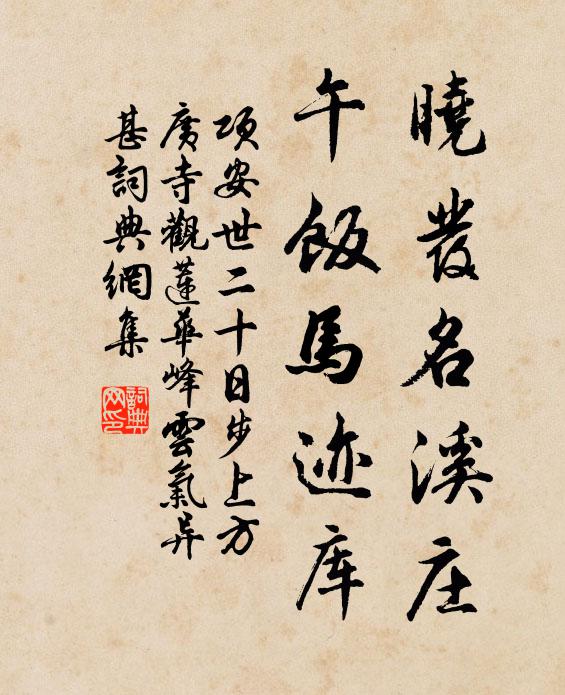 曉發名溪庄
午飯馬迹库
项安世二十日步上方
广寺觀蓮華峰雲氣异
甚詞典網集
詞典网印